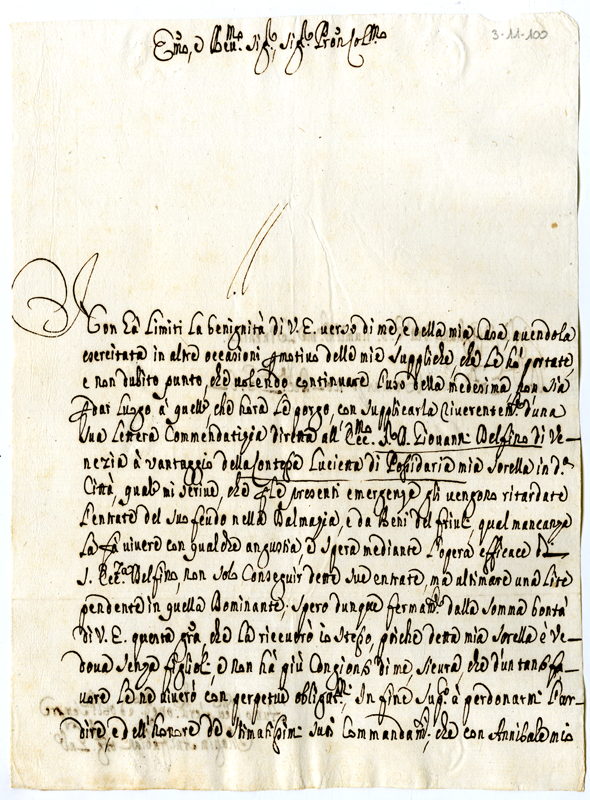 3·11·100
Emo, e Reu.mo Sig.r, Sig.r Pron Col.mo
Non hà Limiti la benignità di V. E. verso di me, e della mia Casa auendola
esercitata in altre occasioni motiuo delle mie Suppliche che Le hò portate,
e non dubito punto, che uolendo continuare l'uso della medesima non sia
dar Luogo à quelle, che hora Le porgo, con Supplicarla riuerentem.te d'una
Sua Lettera Commendatizia diretta all' Ecc.mo S. D. Giouanni Delfino di Ve-
nezia à vantaggio della Contesa Lucietta di Possidaria mia Sorella in d.a
Città, qual mi Scriue, che le presenti emergenze gli uengono ritardate
l'entrate del Suo feudo nella Dalmazia, e da Beni del friul, qual mancanza
La fà uiuere con qualche angustia e Spera mediante l'opera efficace di
S. Ecc.za Delfino, non solo Conseguir dette Sue entrate, mà ultimare una Lite
pendente in quella Dominante. Spero dunque fermam.te dalla Somma bontà
di V. E. questa gra, che La riceuerò io Stesso, poiche detta mia Sorella è Ve-
doua Senza figlioli, e non hà più Congionti di me, Sicura, che d'un tanto fa-
uore Le ne viuerò con perpetue obligat.ni. In fine Sup.co à perdonarmi l'ar-
dire, e dell'honore de Stimatissimi Suoi Commandam.ti, che con Annibale mio